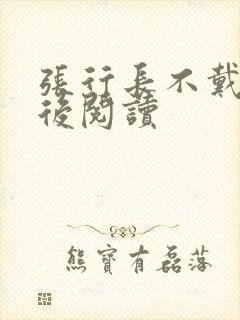 張行長不戴
後閱讀
熊寶有磊落